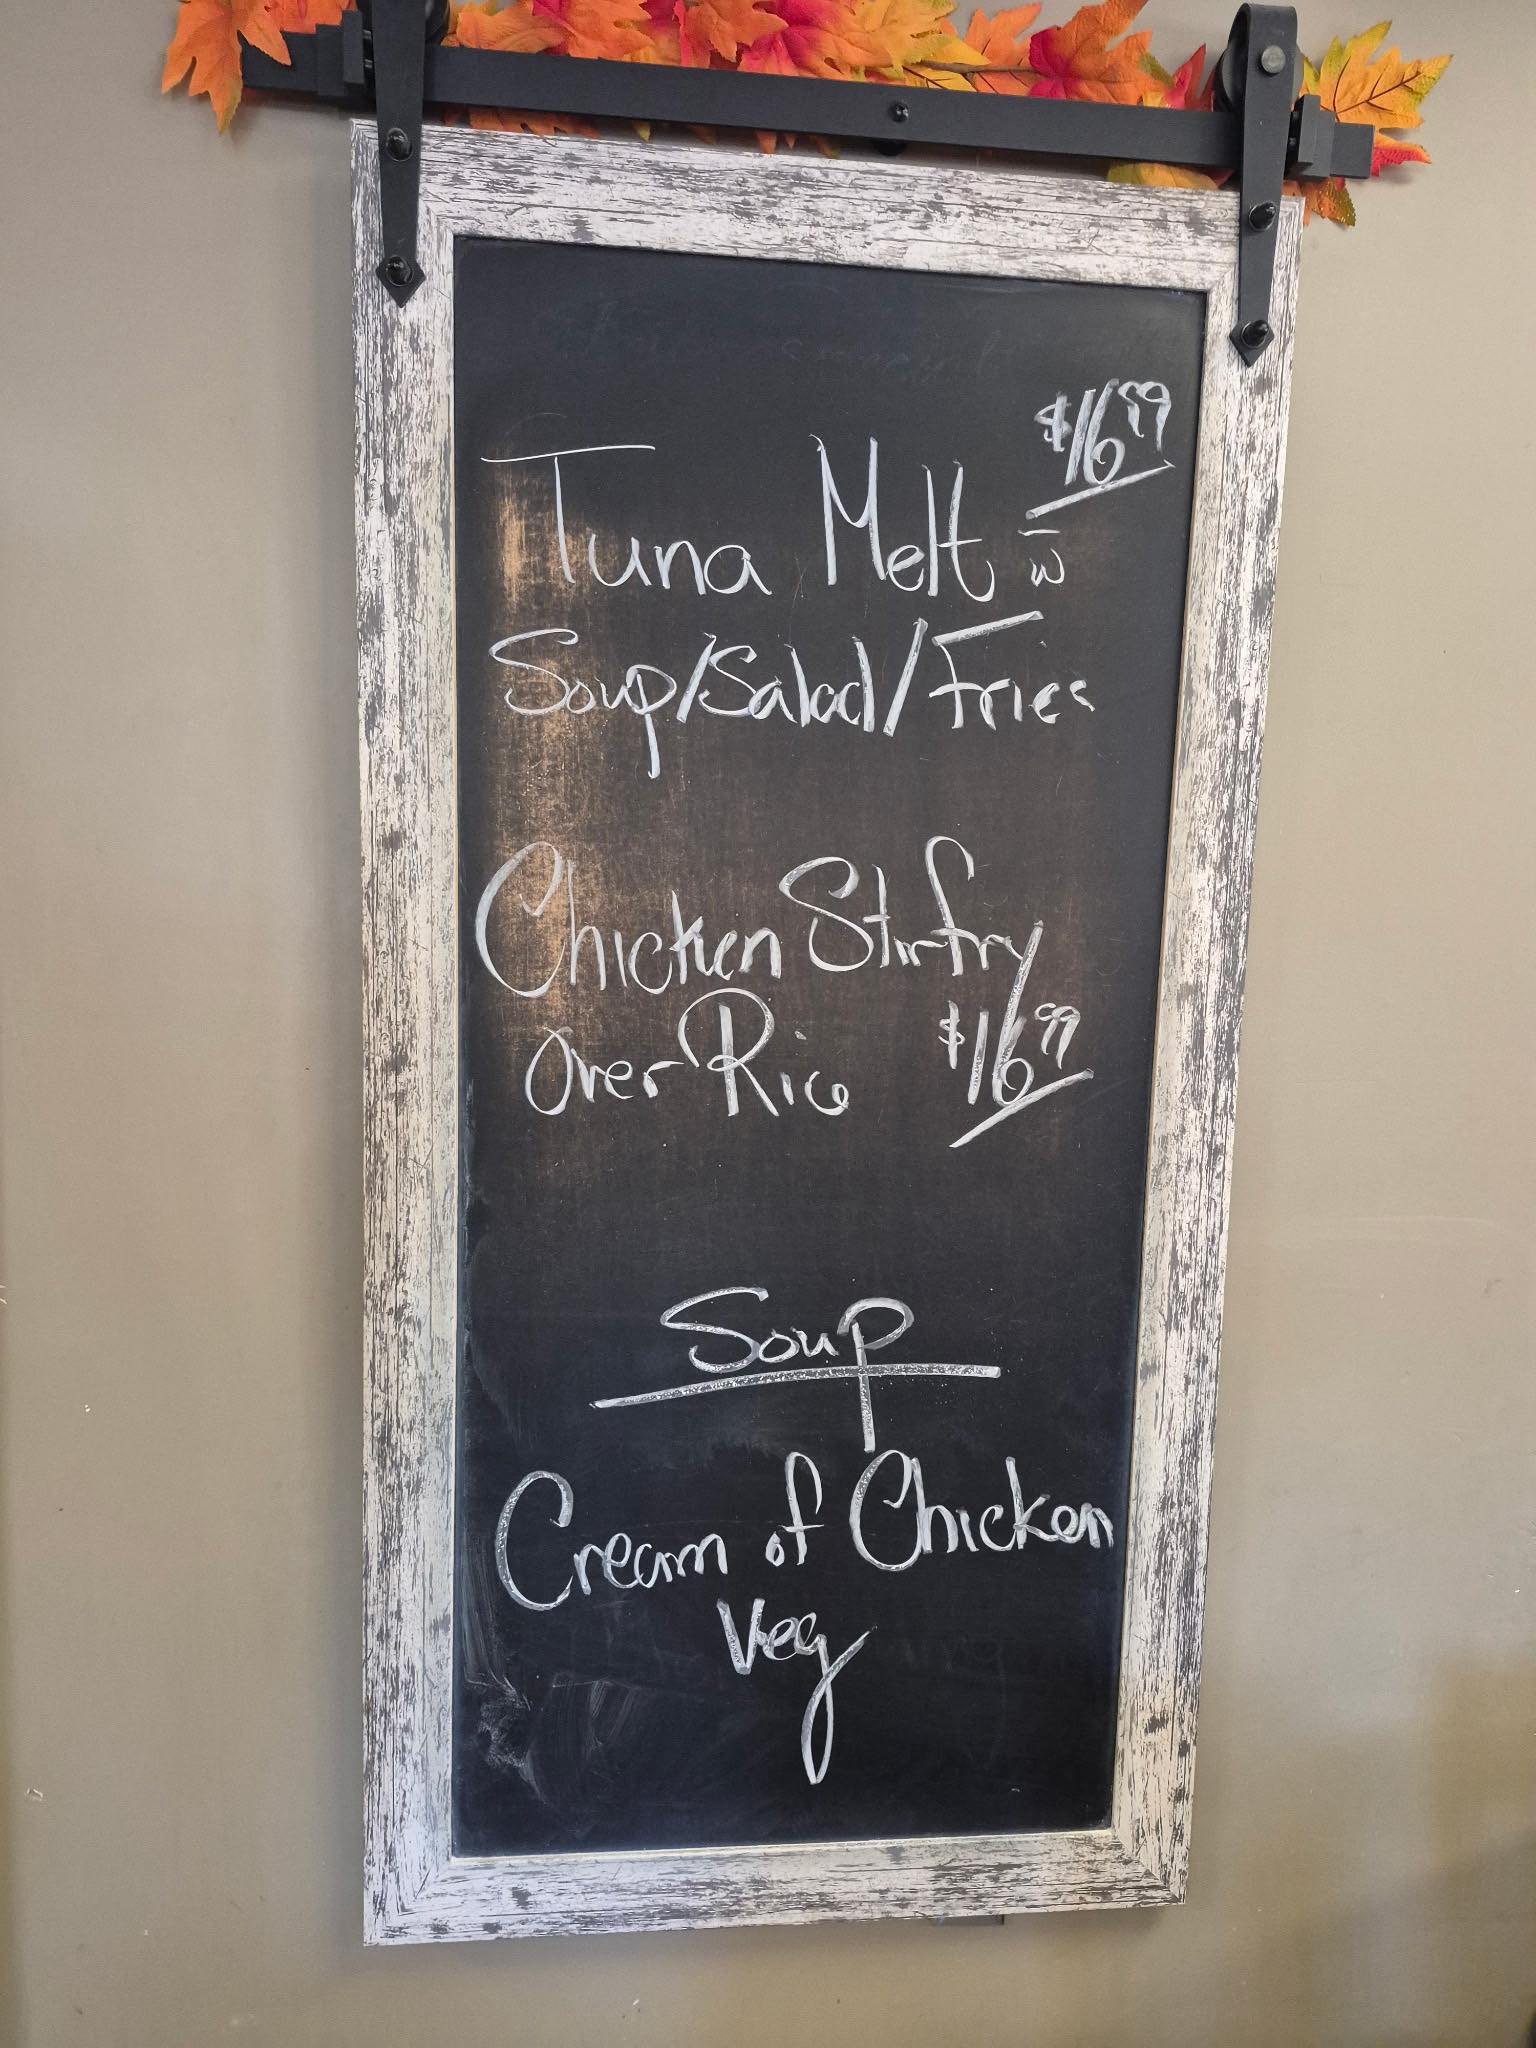 $16.99
Tuna Melt w̄
Soup/Salad/Fries
Chicken Stirfry
Over Rice $16.99
Soup
Cream of Chicken
Veg